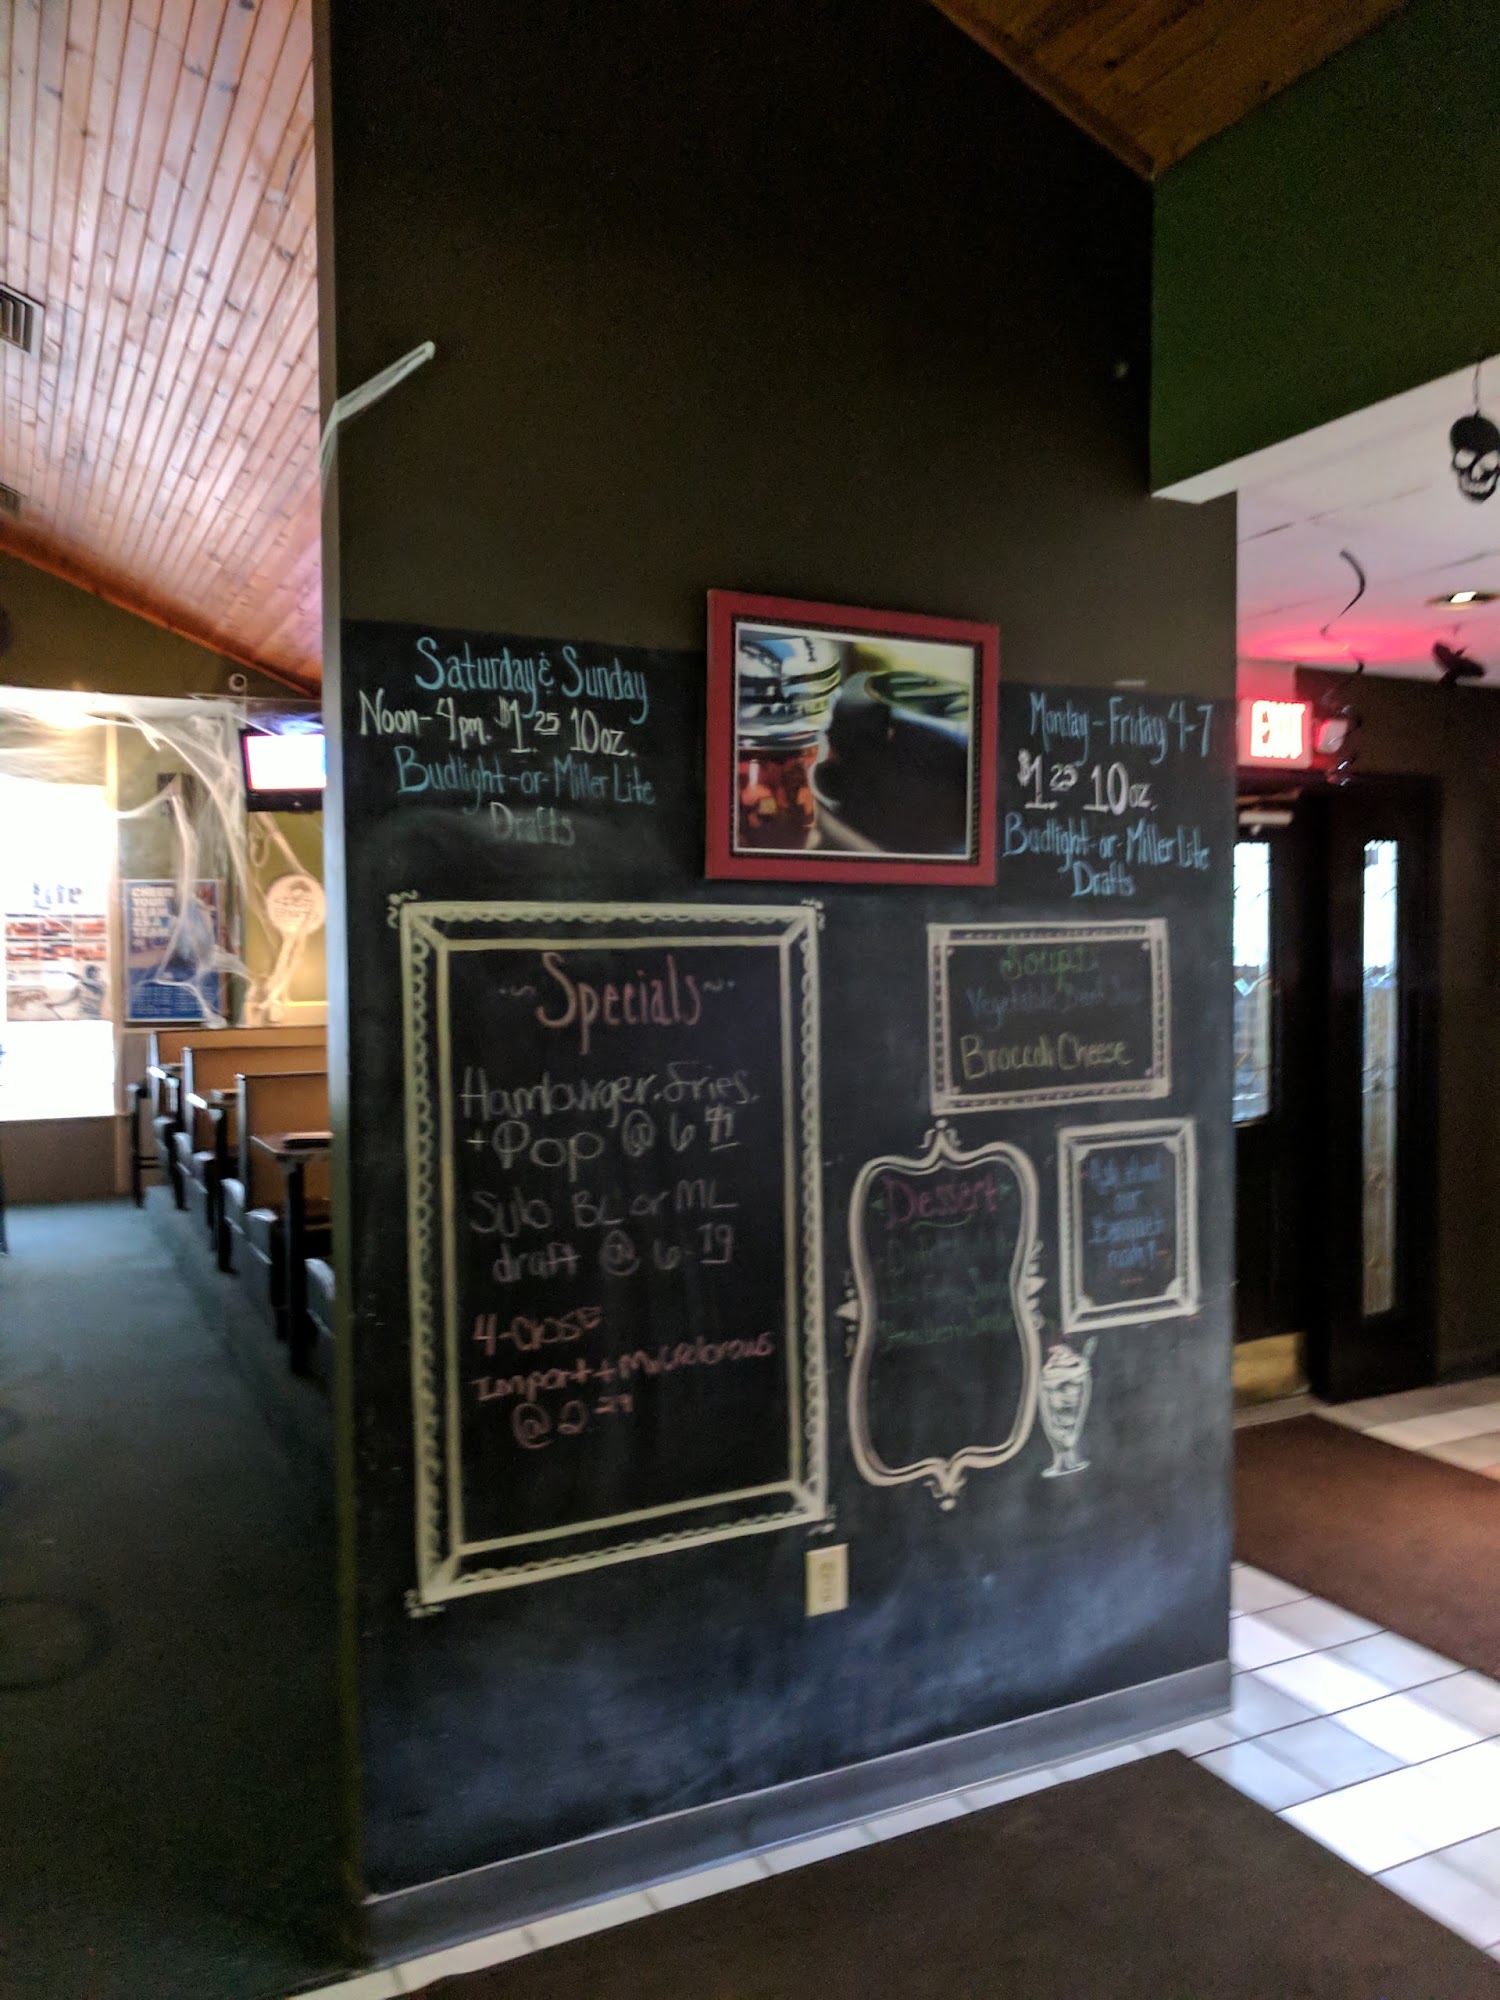 Saturday & Sunday
Noon-4pm. $1.25 10oz.
Budlight-or-Miller Lite
Drafts
Monday-Friday 4-7
$1.25 10oz.
Budlight-or-Miller Lite
Drafts
EXIT
Lite
CHEER
YOUR
TEAM
Specials
Hamburger, Fries,
+ Pop @ 6
Sub BL or ML
draft @ 6.79
4-Close
Import + Microbrews
@ 2.29
Soups
Vegetable Beef
Broccoli Cheese
Dessert
Ask about
our
Banquet
room!